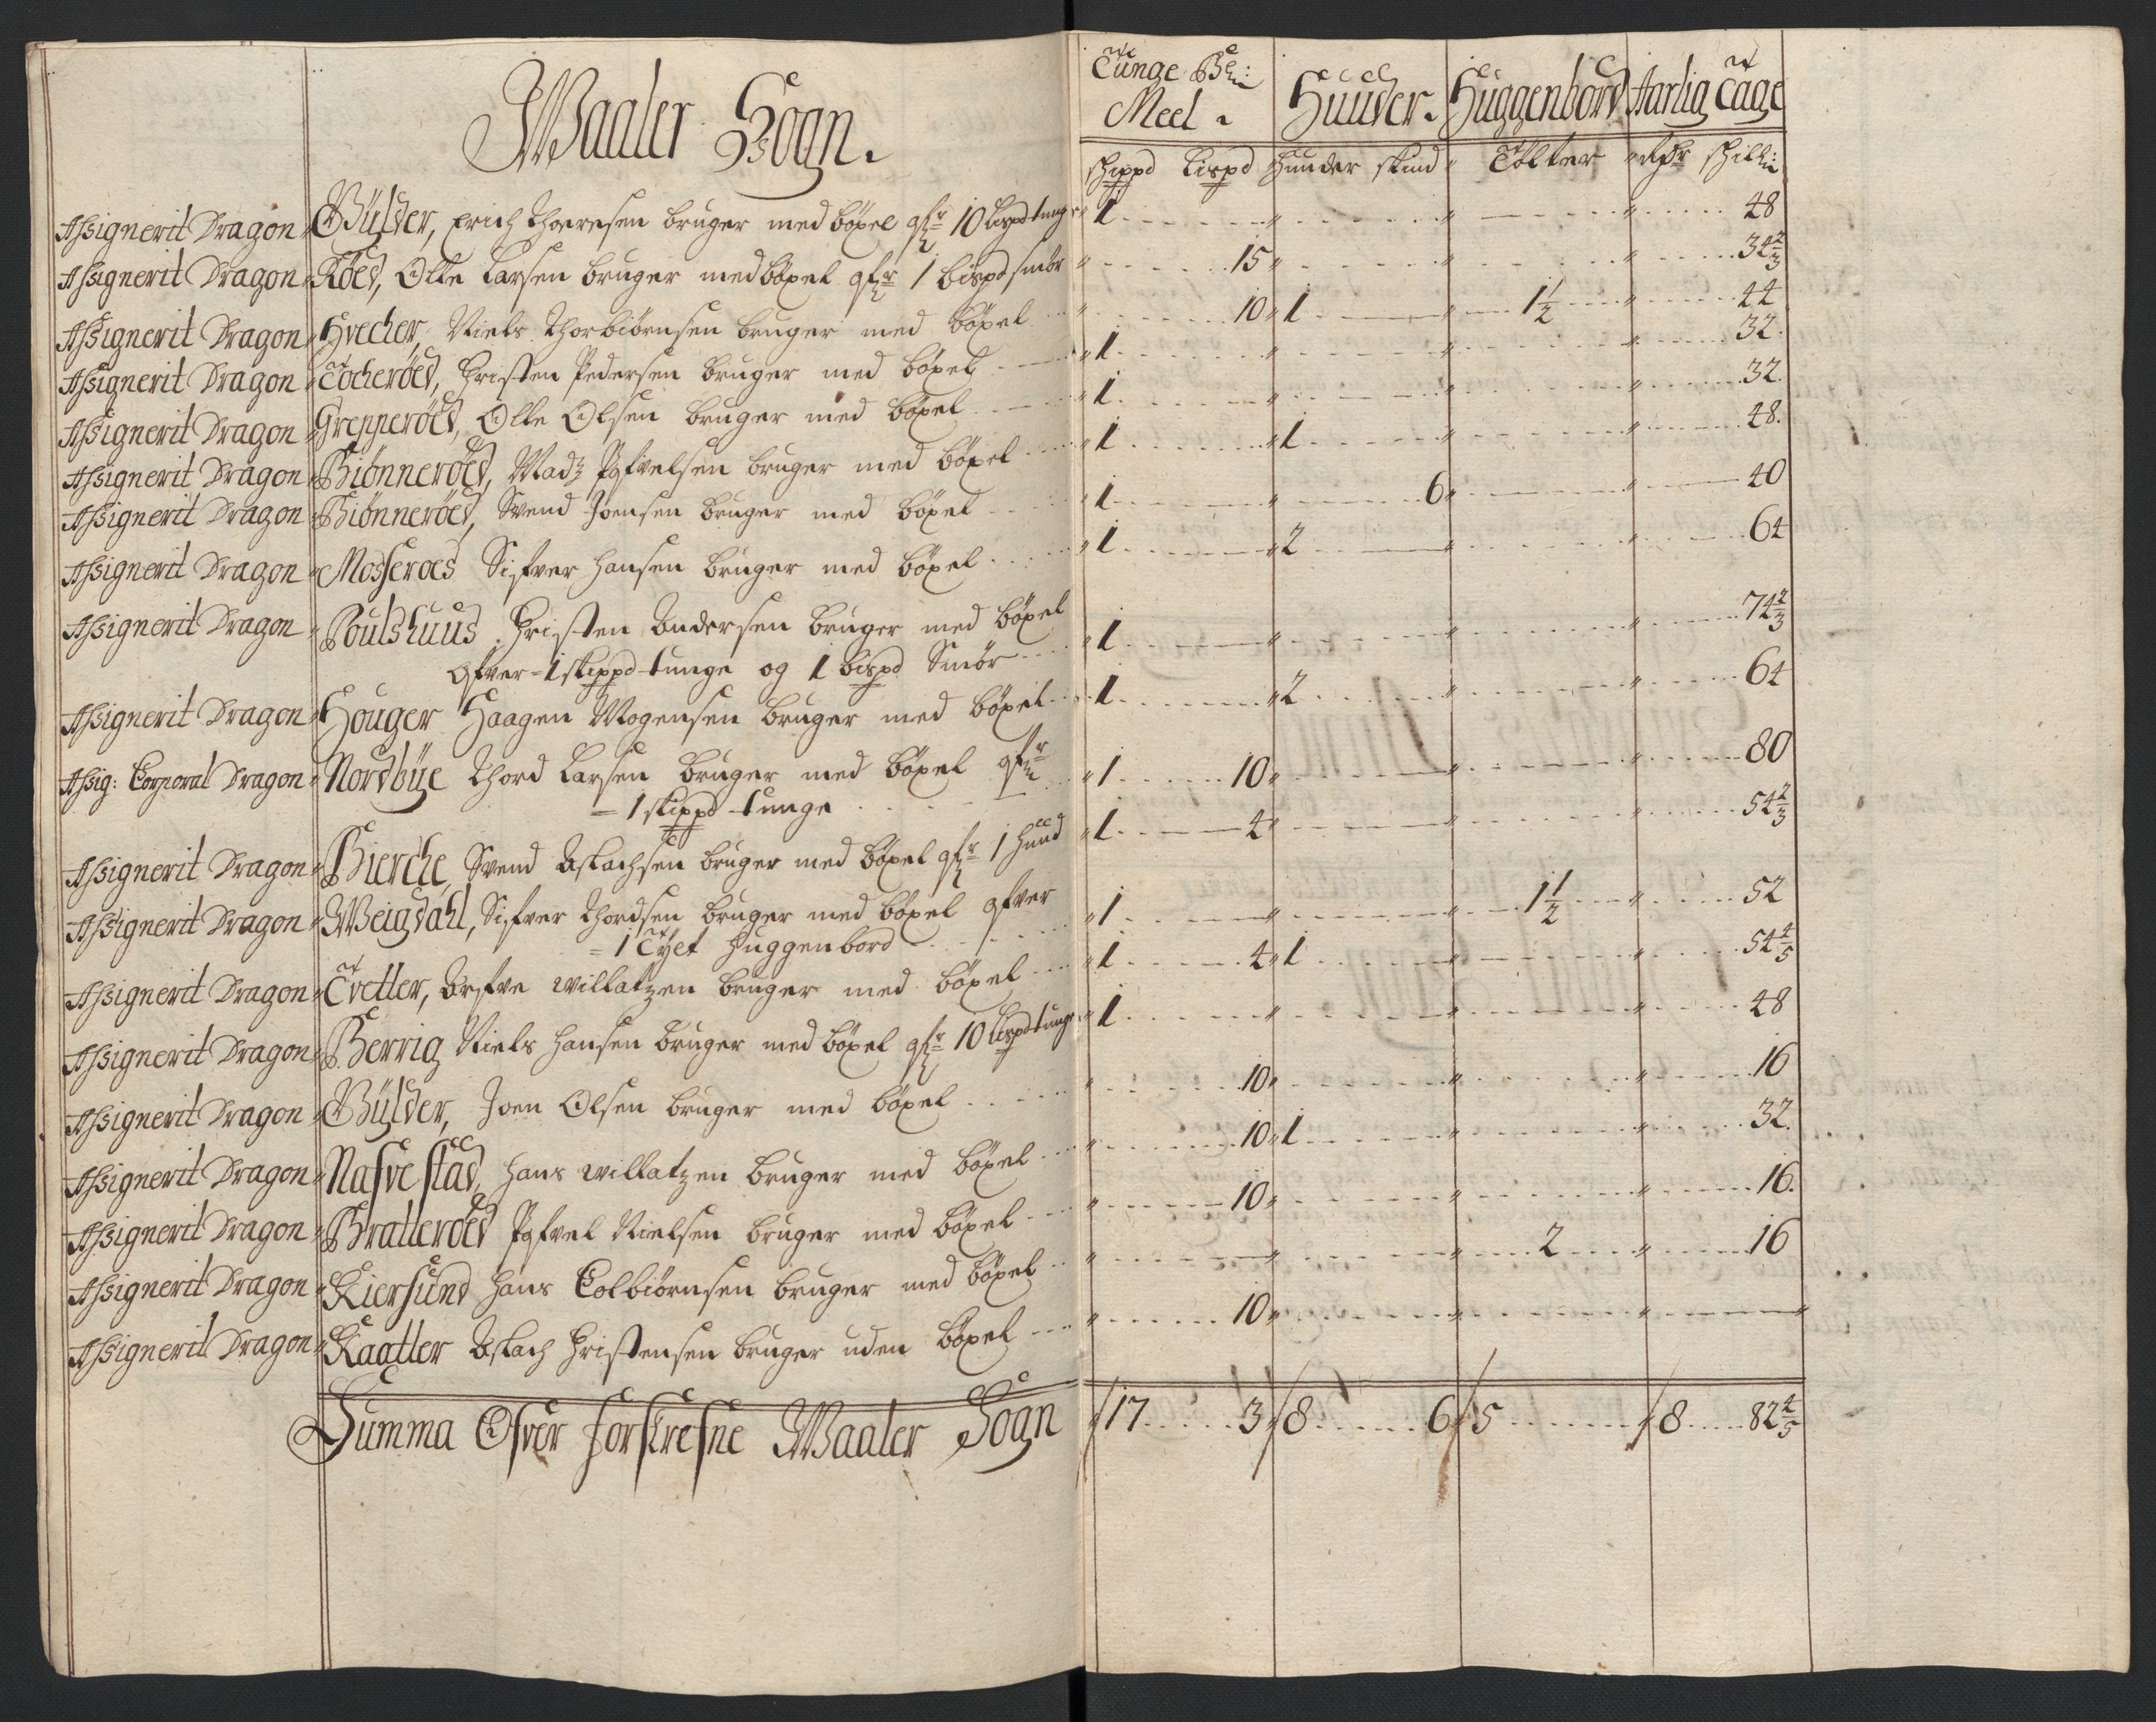 Waaler Sogn.
Tunge Meel. Huuder. Huggenbord Aarlig Tage
Schippd Lispd Huuder skind Tolter Rdr skill:
Assignerit Dragon Bülder, Erich Thoresen bruger med böxel ofr 10 Lispd tunge 1 48
Assignerit Dragon Röed, Olle Larsen bruger med böxel ofr 1 Bispd smör 15 34 2/3
Assignerit Dragon Hvecher, Niels Thorbiörnsen bruger med böxel 10 1 1 1/2 44
Assignerit Dragon Tocheröed, Christen Pedersen bruger med böxel 1 32.
Assignerit Dragon Grepperöed, Olle Olsen bruger med böxel 1 32.
Assignerit Dragon Biönneröed, Madz Pofvelsen bruger med böxel 1 1 48.
Assignerit Dragon Biönneröed, Svend Joensen bruger med böxel 1 6 40
Assignerit Dragon Mosseroed Sifver Hansen bruger med böxel 1 2 64
Assignerit Dragon Poulshuus. Christen Andersen bruger med böxel
ofver 1 skippd tunge og 1 bispd Smör 1 74 2/3
Assignerit Dragon Houger Haagen Mogensen bruger med böxel 1 2 64
Assig: Corporal Dragon Nordbÿe Thord Larsen bruger med böxel ofr
1 skippd tunge 1 10 80
Assignerit Dragon Bierche, Svend Aslachsen bruger med böxel ofr 1 huud 1 4 54 2/3
Assignerit Dragon Weigdahl, Sifver Thordsen bruger med böxel ofver
1 Tÿet Huggenbord 1 1 1/2 52
Assignerit Dragon Tvetter, Arfve Willatzen bruger med böxel 1 4 1 54 4/5
Assignerit Dragon Berrig Niels Hansen bruger med böxel ofr 10 Lispd tunge 1 48
Assignerit Dragon Bülder, Joen Olsen bruger med böxel 10 16
Assignerit Dragon Nafvestad, Hans Willatzen bruger med böxel 10 1 32.
Assignerit Dragon Bratteröed Pofvel Nielsen bruger med böxel 10 16.
Assignerit Dragon Kiersund Hans Colbiörnsen bruger med böxel 2 16
Assignerit Dragon Kaatter Aslach Christensen bruger uden böxel 10
Summa Ofver forskrefne Waaler Sogn 17 3 8 6 5 8 82 4/5